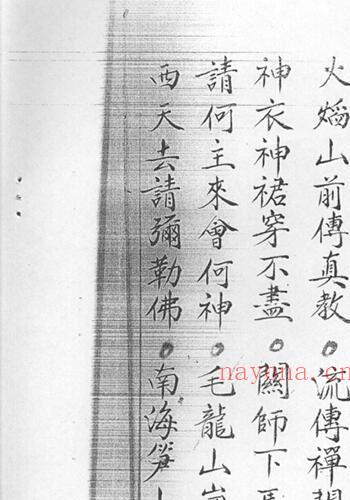 火熖山前傳真教。流傳禪
神衣神裙穿不盡。闗師下馬
請何主來會何神。毛龍山
西天去請彌勒佛。南海
nayona.cn